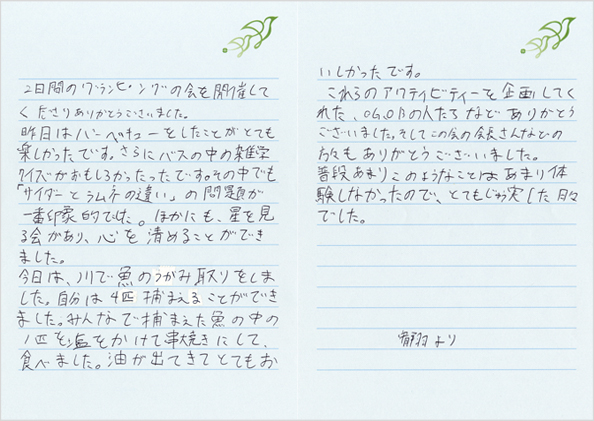 2日間のグランピングの会を開催して
くださりありがとうございました。
昨日はバーベキューをしたことがとても
楽しかったです。さらにバスの中の雑学
クイズがおもしろかったったです。その中でも
「サイダーとラムネの違い」の問題が
一番印象的でした。ほかにも、星を見
る会があり、心を清めることができ
ました。
今日は、川で魚のつかみ取りをしま
した。自分は4匹捕まえることができ
ました。みんなで捕まえた魚の中の
1匹を塩をかけて串焼きにして、
食べました。油が出てきてとてもお
いしかったです。
これらのアクティビティーを企画してく
れた、OG、OBの人たちなどありがとう
ございました。そしてこの会の会長さんなどの
方々もありがとうございました。
普段あまりこのようなことはあまり体
験しなかったので、とてもじゅう実した日々
でした。
より